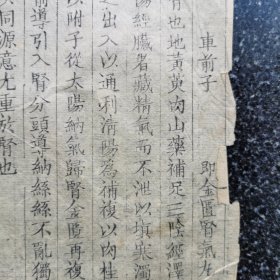 車前子　即金匱腎氣
有也地黃萸肉山藥補足三陰經澤
陽經臟者藏精氣而不泄以填塞濁
之出入以通利清陽為補複以肉桂
以附子從太陽納氣歸腎金匱再複
前導引入腎分頭導納絲絲不亂獨
以同源意尤重於腎也